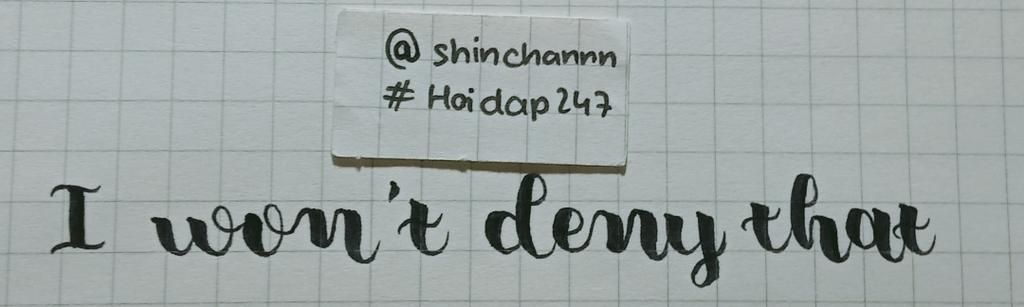 @ shinchannn
# Hoidap247
I won't deny that